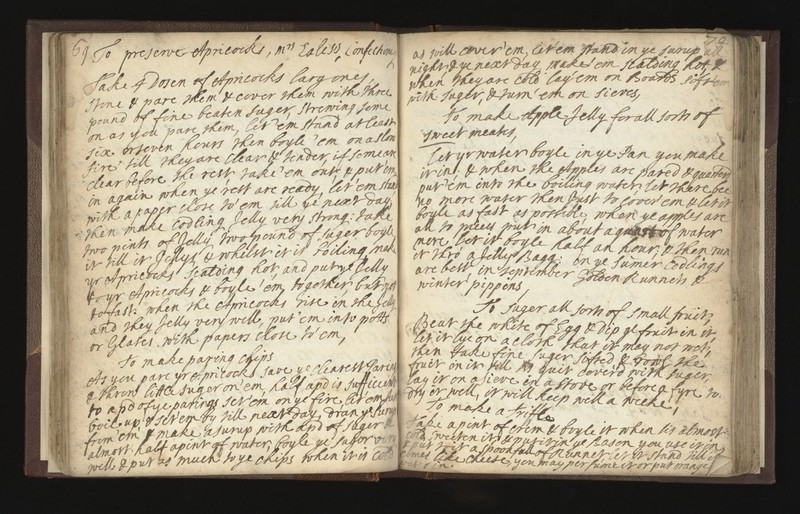 69 To preserve Apricocks, Mrs Eales's, Confectioner
Take 4 Dosen of Apricocks large ones,
stone & pare them & cover them with three
pound of fine beaten suger, strewing some
on as you pare them, let 'em stand at least
six or seven hours then boyle 'em on a slow
fire till they are clear & tender, if some are
clear before the rest take 'em out & put 'em
in again when ye rest are ready, let 'em stand
with a paper close to 'em till ye next day,
then make Codling Jelly very strong: take
two pints of Jelly two pound of suger boyle
it till it Jellys & whilst it is boiling make
yr Apricocks scalding hot, and put ye Jelly
to yr Apricocks & boyle 'em together but not
to fast: when the Apricocks rise in the Jelly
and they Jelly very well, put 'em into potts
or Glases with papers close to 'em,
To make paring Chips
As you pare yr Apricocks save ye clearest Pareings
& throw little suger on 'em half a pd is sufficient
to a pd of ye parings set 'em on ye fire let 'em just
boile up & set 'em by till next day, drane ye surup
from 'em & make a surup with a pd of suger &
almost half a pint of water, boyle ye suger very
well & put as much to ye chips when it is cold
70
as will cover 'em, let 'em stand in ye surup all
night & ye next day make 'em scalding hot, &
when they are cold lay 'em on Boards sift 'em
with suger, & turn 'em on sieves,
To make Apple Jelly for all sorts of
sweet meates,
Let yr water boyle in ye Pan you make
it in, & when the Apples are pared & quartered
put 'em into the boiling water, let there be
no more water then just to cover 'em & let it
boyle as fast as possible, when ye apples are
all to pieces put in about a quart of water
more, let it boyle half an hour, & then run
it thro a Jelly Bagg: in ye sumer Codlings
are best in September Golden Runnets &
winter pippins,
To suger all sorts of small fruit,
Beat the white of Egg & dip ye fruit in it,
let it lye on a cloth that it may not wet,
then take fine suger sifted & rowl the
fruit in it till tis quit cover'd with suger,
lay it on a sieve in a stove or before a fyre to
dry it well, it will keep well a weeke,
To make a trifle
Take a pint of crem & boyle it when tis almost
cold, sweeten it & put it in ye Bason you use it in,
& put to it a spoonfull of Runnet let it stand till it
comes like cheese, you may perfume it or put orange